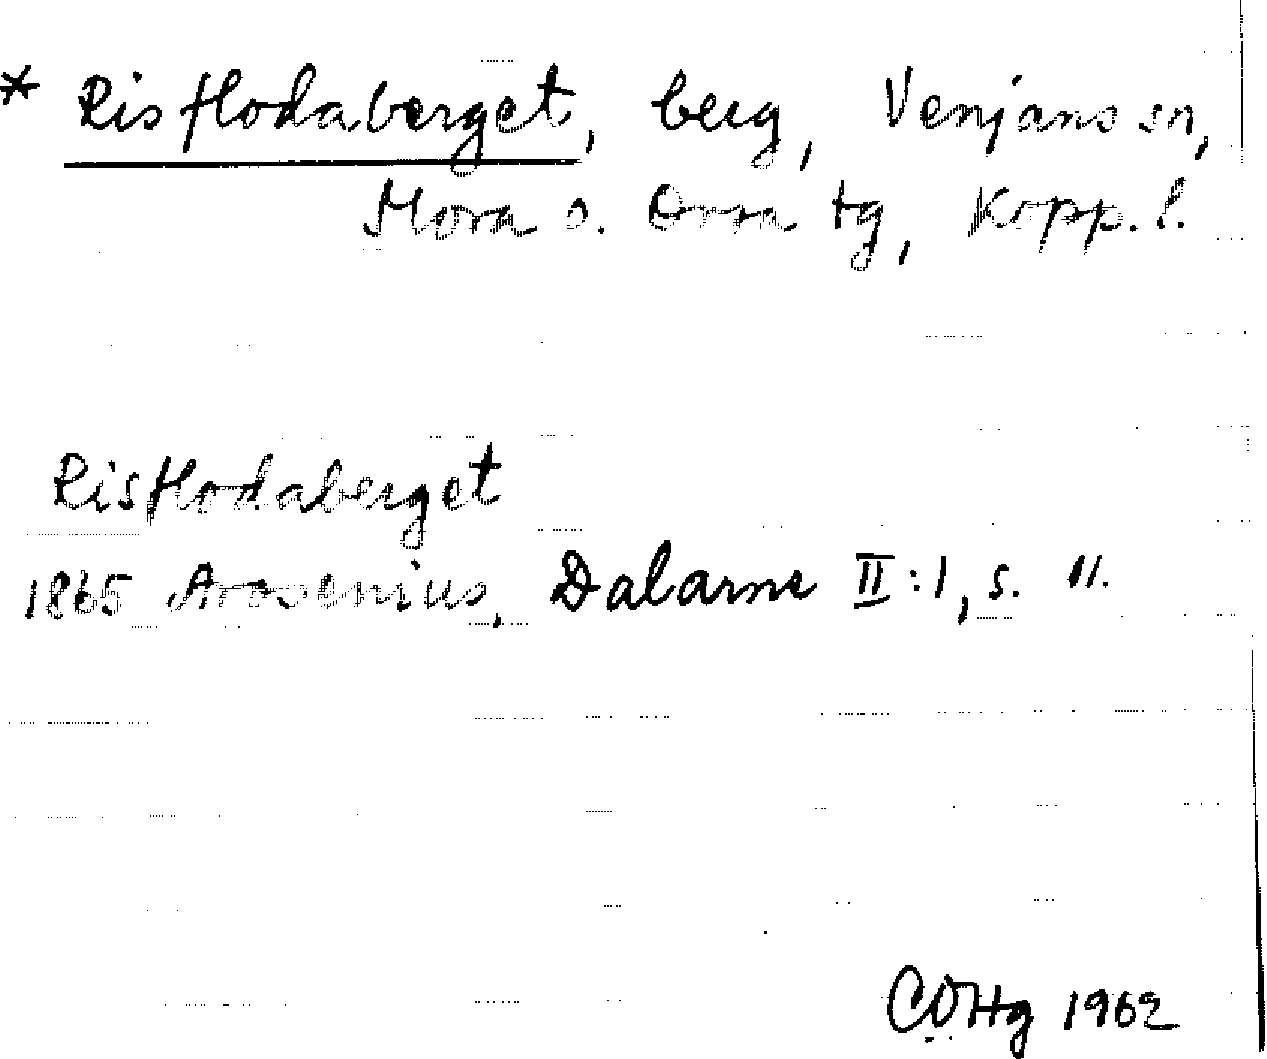 * Risflodaberget, berg, Venjans sn,
Mora o. Orsa tg, Kopp. l.
Risflodaberget
1865 Arosenius, Dalarne II:1, s. 11.
COHg 1962